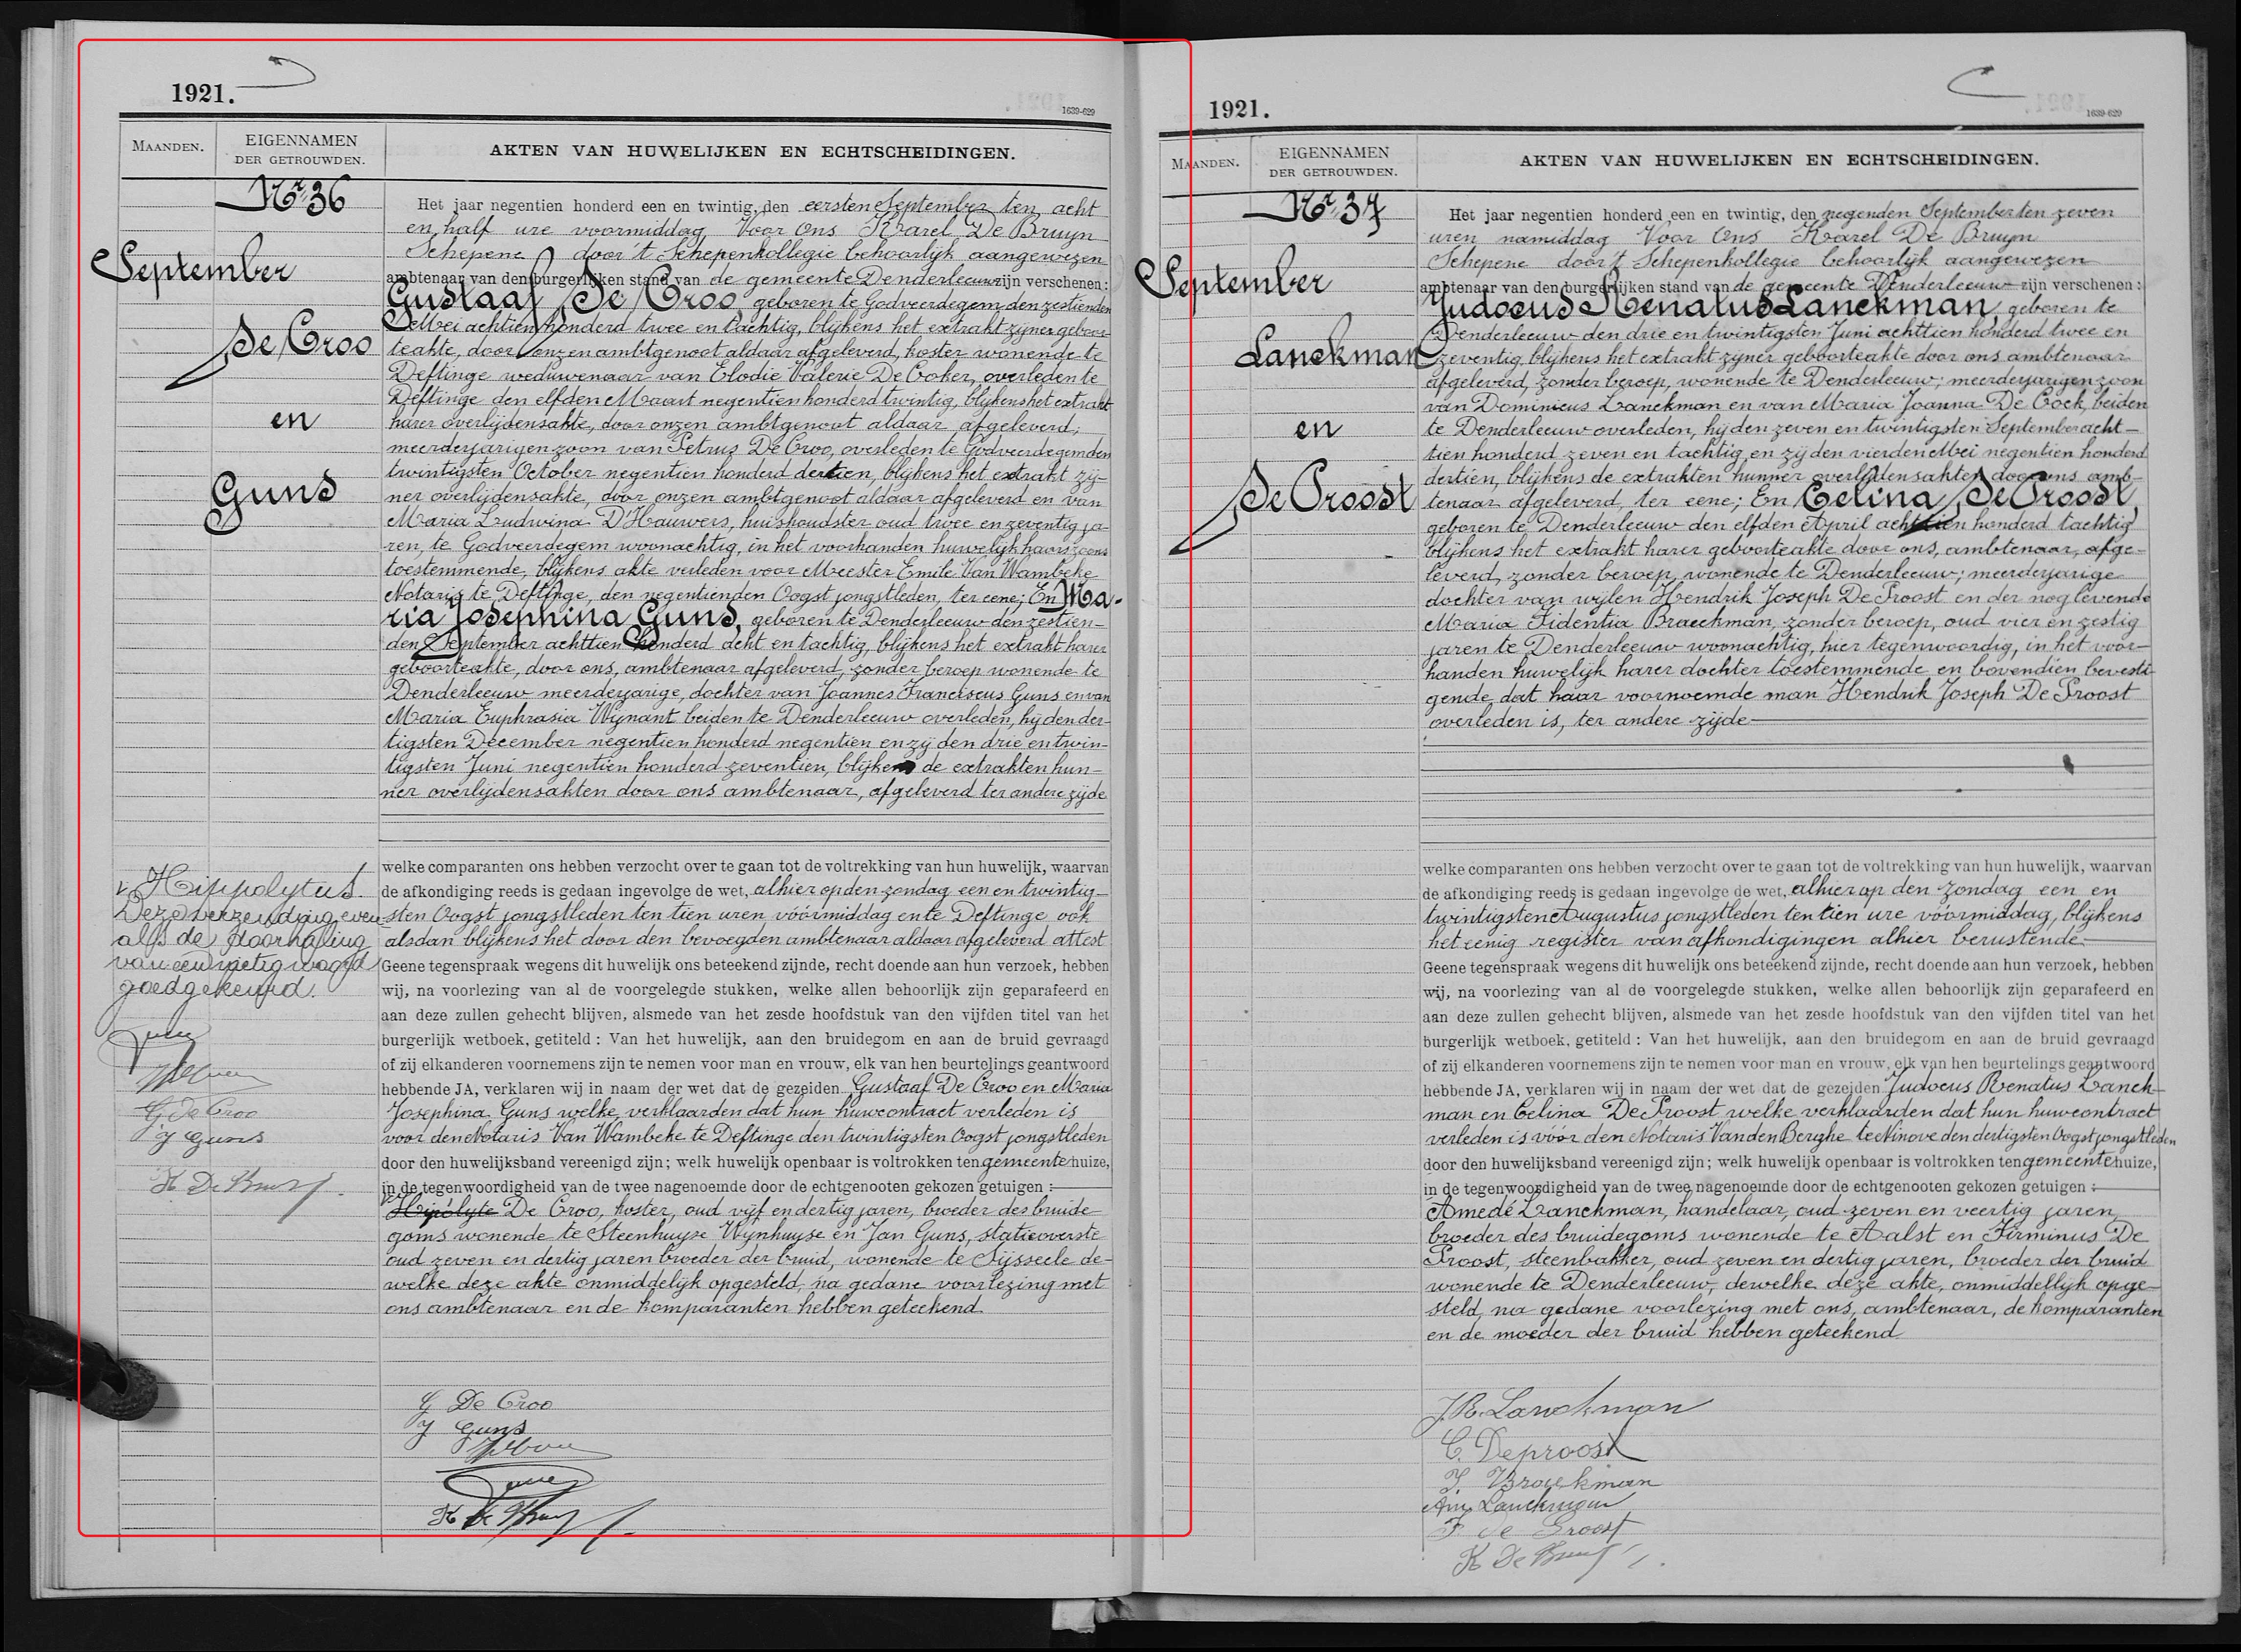 1921.
1639-629
MAANDEN.
EIGENNAMEN
DER GETROUWDEN.
AKTEN VAN HUWELIJKEN EN ECHTSCHEIDINGEN.
Nr 36
September
De Croo
en
Guns
Het jaar negentien honderd een en twintig, den eersten September ten acht
en half ure voormiddag Voor Ons Karel De Bruyn
Schepene door 't Schepenkollegie behoorlijk aangewezen
ambtenaar van den burgerlijken stand van de gemeente Denderleeuw zijn verschenen:
Gustaaf De Croo, geboren te Godveerdegem den zestienden
Mei achtien honderd twee en tachtig, blijkens het extrakt zijner geboor-
teakte, door onzen ambtgenoot aldaar afgeleverd, koster wonende te
Deftinge weduwenaar van Elodie Valerie De Coker, overleden te
Deftinge den elfden Maart negentien honderd twintig, blijkens het extrakt
harer overlijdensakte, door onzen ambtgenoot aldaar afgeleverd;
meerderjarigen zoon van Petrus De Croo, overleden te Godveerdegem den
twintigsten October negentien honderd dertien, blijkens het extrakt zij-
ner overlijdensakte, door onzen ambtgenoot aldaar afgeleverd en van
Maria Ludwina D'Hauwers, huishoudster oud twee en zeventig ja-
ren, te Godveerdegem woonachtig, in het voorhanden huwelijk haars zoons
toestemmende, blijkens akte verleden voor Meester Emile Van Wambeke
Notaris te Deftinge, den negentienden Oogst jongstleden, ter eene; En Ma-
ria Josephina Guns, geboren te Denderleeuw den zestien-
den September achttien honderd acht en tachtig, blijkens het extrakt harer
geboorteakte, door ons, ambtenaar afgeleverd, zonder beroep wonende te
Denderleeuw meerderjarige, dochter van Joannes Franciscus Guns en van
Maria Euphrasia Wijnant beiden te Denderleeuw overleden, hij den der-
tigsten December negentien honderd negentien en zij den drie en twin-
tigsten Juni negentien honderd zeventien, blijkens de extrakten hun-
ner overlijdensakten door ons ambtenaar, afgeleverd ter andere zijde
welke comparanten ons hebben verzocht over te gaan tot de voltrekking van hun huwelijk, waarvan
de afkondiging reeds is gedaan ingevolge de wet, alhier op den zondag een en twintig-
sten Oogst jongstleden ten tien uren vóórmiddag en te Deftinge ook
alsdan blijkens het door den bevoegden ambtenaar aldaar afgeleverd attest
Geene tegenspraak wegens dit huwelijk ons beteekend zijnde, recht doende aan hun verzoek, hebben
wij, na voorlezing van al de voorgelegde stukken, welke allen behoorlijk zijn geparafeerd en
aan deze zullen gehecht blijven, alsmede van het zesde hoofdstuk van den vijfden titel van het
burgerlijk wetboek, getiteld : Van het huwelijk, aan den bruidegom en aan de bruid gevraagd
of zij elkanderen voornemens zijn te nemen voor man en vrouw, elk van hen beurtelings geantwoord
hebbende JA, verklaren wij in naam der wet dat de gezeiden Gustaaf De Croo en Maria
Josephina Guns welke verklaarden dat hun huwcontract verleden is
voor den Notaris Van Wambeke te Deftinge den twintigsten Oogst jongstleden
door den huwelijksband vereenigd zijn; welk huwelijk openbaar is voltrokken ten gemeentehuize,
in de tegenwoordigheid van de twee nagenoemde door de echtgenooten gekozen getuigen :
Hipólyte De Croo, koster, oud vijf en dertig jaren, broeder des bruide-
goms wonende te Steenhuyse Wijnhuyse en Jan Guns, statieoverste
oud zeven en dertig jaren broeder der bruid, wonende te Sijsseele de-
welke deze akte onmiddelijk opgesteld, na gedane voorlezing met
ons ambtenaar en de komparanten hebben geteekend.
Hippolytus.
Deze verzending even
als de doorhaling
van een nietig woord
goedgekeurd.
G De Croo
J Guns
K De Bruyn
G De Croo
J Guns
K De Bruyn
1921.
1639-629
MAANDEN.
EIGENNAMEN
DER GETROUWDEN.
AKTEN VAN HUWELIJKEN EN ECHTSCHEIDINGEN.
Nr 37
September
Lanckman
en
De Proost
Het jaar negentien honderd een en twintig, den negenden September ten zeven
uren namiddag Voor Ons Karel De Bruyn
Schepene door 't Schepenkollegie behoorlijk aangewezen
ambtenaar van den burgerlijken stand van de gemeente Denderleeuw zijn verschenen:
Judocus Renatus Lanckman, geboren te
Denderleeuw den drie en twintigsten Juni achttien honderd twee en
zeventig, blijkens het extrakt zijner geboorteakte door ons ambtenaar
afgeleverd, zonder beroep, wonende te Denderleeuw; meerderjarigen zoon
van Dominicus Lanckman en van Maria Joanna De Cock, beiden
te Denderleeuw overleden, hij den zeven en twintigsten September acht-
tien honderd zeven en tachtig, en zij den vierden Mei negentien honderd
dertien, blijkens de extrakten hunner overlijdensakten door ons amb-
tenaar afgeleverd, ter eene; En Celina De Proost,
geboren te Denderleeuw den elfden April achttien honderd tachtig
blijkens het extrakt harer geboorteakte door ons, ambtenaar, afge-
leverd, zonder beroep, wonende te Denderleeuw; meerderjarige
dochter van wijlen Hendrik Joseph De Proost en der nog levende
Maria Fidentia Braeckman, zonder beroep, oud vier en zestig
jaren te Denderleeuw woonachtig, hier tegenwoordig, in het voor-
handen huwelijk harer dochter toestemmende en bovendien bevesti-
gende dat haar voornoemde man Hendrik Joseph De Proost
overleden is, ter andere zijde
welke comparanten ons hebben verzocht over te gaan tot de voltrekking van hun huwelijk, waarvan
de afkondiging reeds is gedaan ingevolge de wet, alhier op den zondag een en
twintigsten Augustus jongstleden ten tien ure vóórmiddag, blijkens
het eenig register van afkondigingen alhier berustende.
Geene tegenspraak wegens dit huwelijk ons beteekend zijnde, recht doende aan hun verzoek, hebben
wij, na voorlezing van al de voorgelegde stukken, welke allen behoorlijk zijn geparafeerd en
aan deze zullen gehecht blijven, alsmede van het zesde hoofdstuk van den vijfden titel van het
burgerlijk wetboek, getiteld : Van het huwelijk, aan den bruidegom en aan de bruid gevraagd
of zij elkanderen voornemens zijn te nemen voor man en vrouw, elk van hen beurtelings geantwoord
hebbende JA, verklaren wij in naam der wet dat de gezeiden Judocus Renatus Lanck-
man en Celina De Proost welke verklaarden dat hun huwcontract
verleden is vóór den Notaris Vanden Berghe te Ninove den dertigsten Oogst jongstleden
door den huwelijksband vereenigd zijn; welk huwelijk openbaar is voltrokken ten gemeentehuize,
in de tegenwoordigheid van de twee nagenoemde door de echtgenooten gekozen getuigen :
Amedé Lanckman, handelaar, oud zeven en veertig jaren,
broeder des bruidegoms wonende te Aalst en Firminus De
Proost, steenbakker, oud zeven en dertig jaren, broeder der bruid
wonende te Denderleeuw, dewelke deze akte, onmiddellijk opge-
steld, na gedane voorlezing met ons, ambtenaar, de komparanten
en de moeder der bruid hebben geteekend
J.R. Lanckman
C. Deproost
F Braeckman
Am Lanckman
F de Proost
K De Bruyn